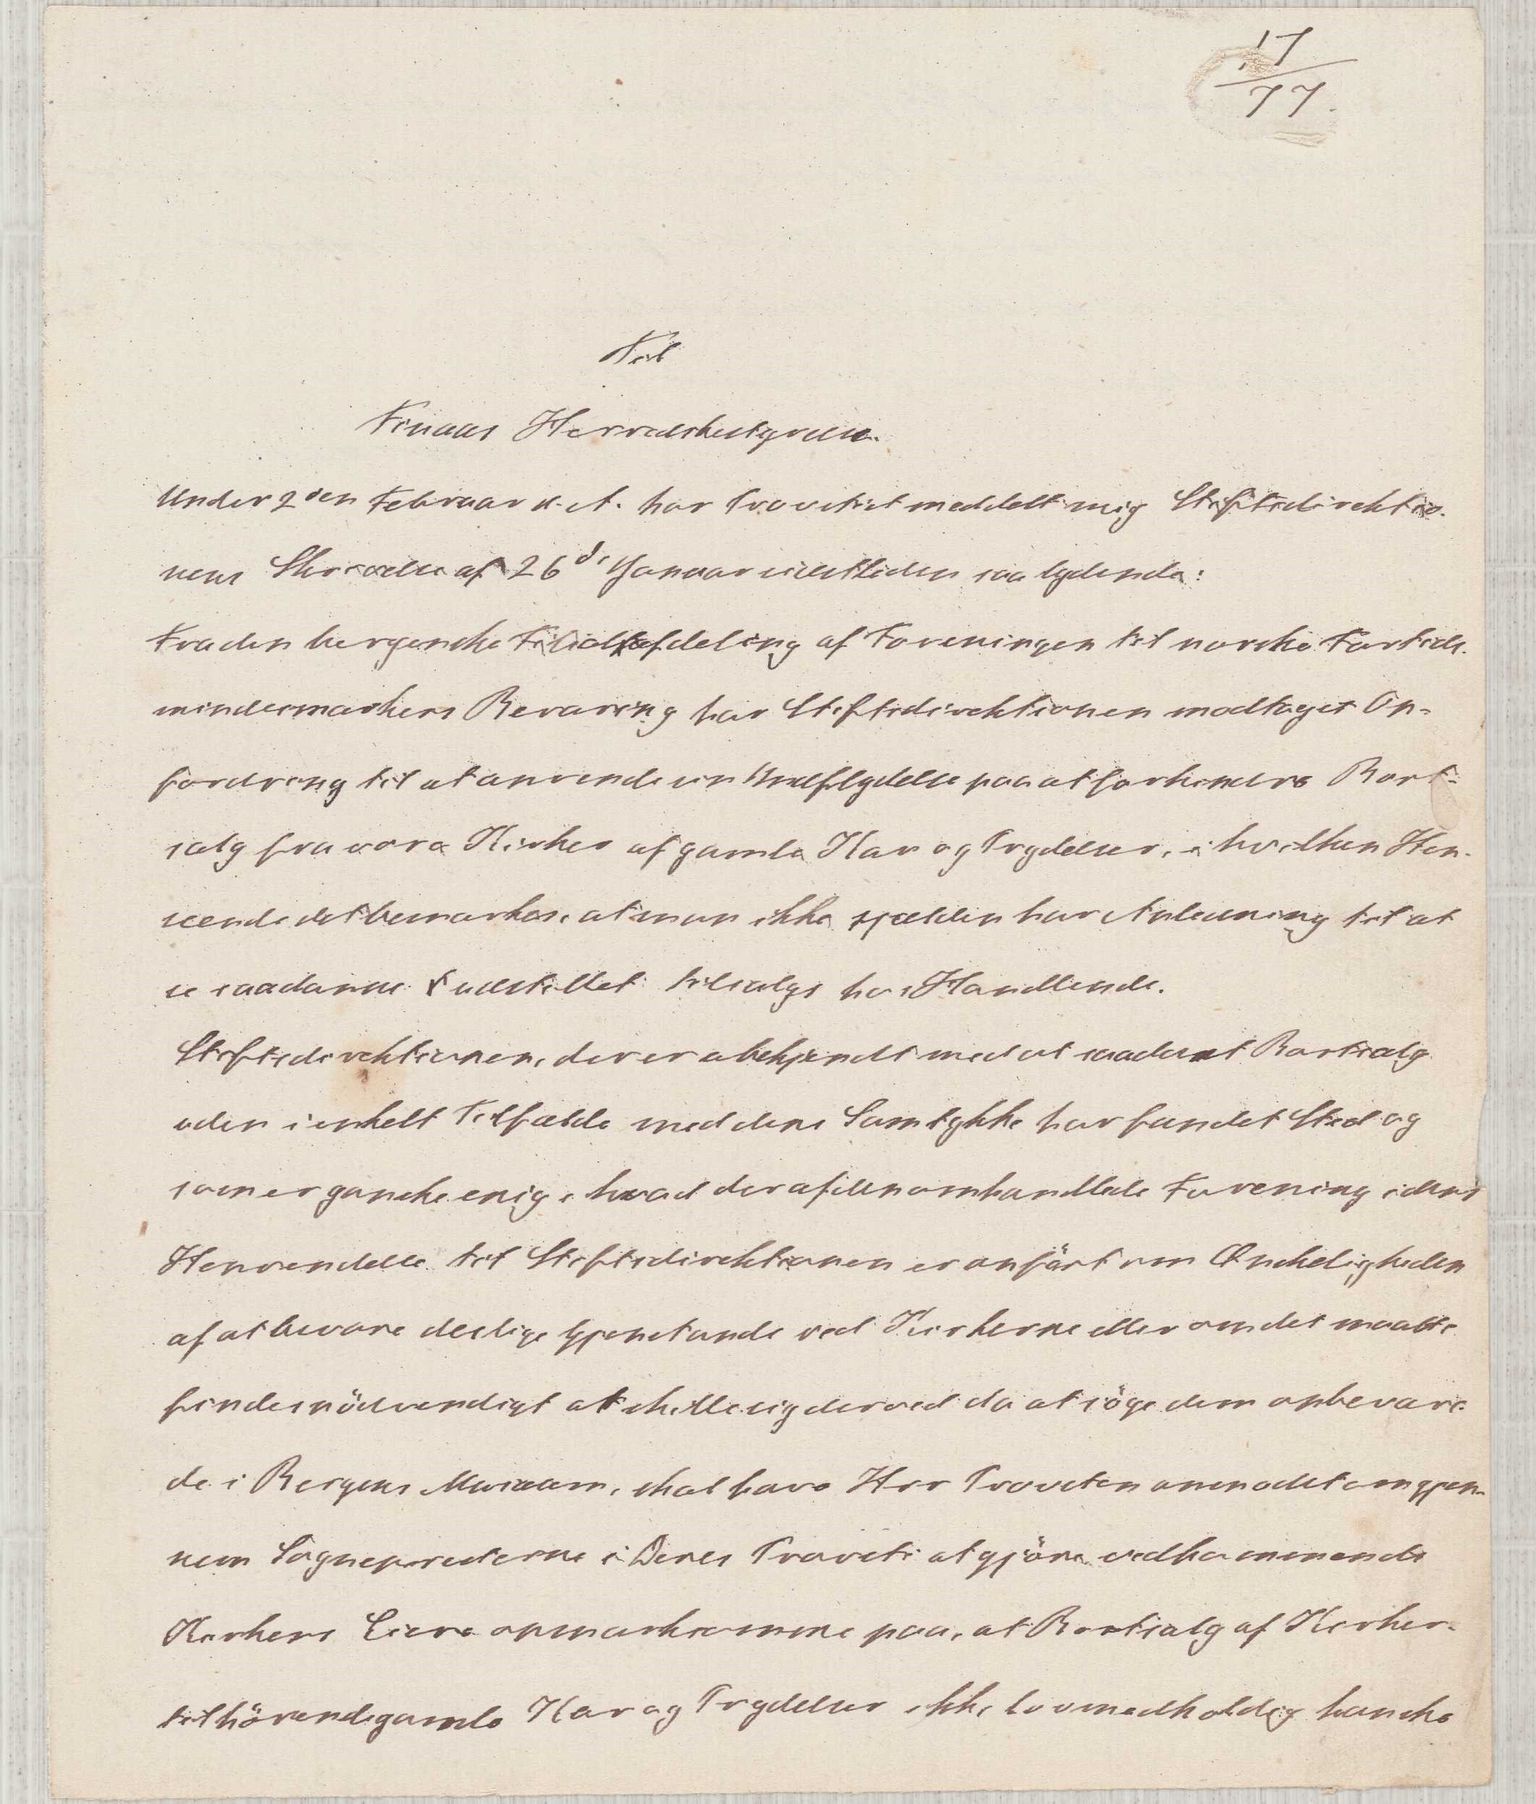 17
77
Til
Finaas Herredsbestyrelse.
Under 2den Februar d. A. har Provstiet meddelt mig Stiftsdirektio-
nens Skrivelse af 26de Januar sidstleden saa lydende:
Fra den bergenske Filialafdeling af Foreningen til norske Fortids-
mindesmærkers Bevaring har Stiftsdirektionen modtaget Op-
fordring til at anvende sin Indflydelse paa at forhindre Bort-
salg fra vore Kirker af gamle Kar og Prydelser, i hvilken Hen-
seende det bemærkes, at man ikke sjælden har Anledning til at
se saadanne udstillet tilsalgs hos Handlende.
Stiftsdirektionen, der er ubekjendt med at saadant Bortsalg
uden i enkelt Tilfælde med dens Samtykke har fundet Sted og
som er ganske enig i hvad der af den omhandlede Forening i dens
Henvendelse til Stiftsdirektionen er anført om Ønskeligheden
af at bevare deslige Gjenstande ved Kirkerne eller om det maatte
findes nödvendigt at skille sig derved da at söge dem opbevare-
de i Bergens Museum, skal have Herr Provsten anmodet om gjen-
nem Sognepresterne i Deres Provsti at gjöre vedkommende
Kirkers Eiere opmærksomme paa, at Bortsalg af Kirker-
tilhörende gamle Kar og Prydelser ikke lovmedholdig kanske